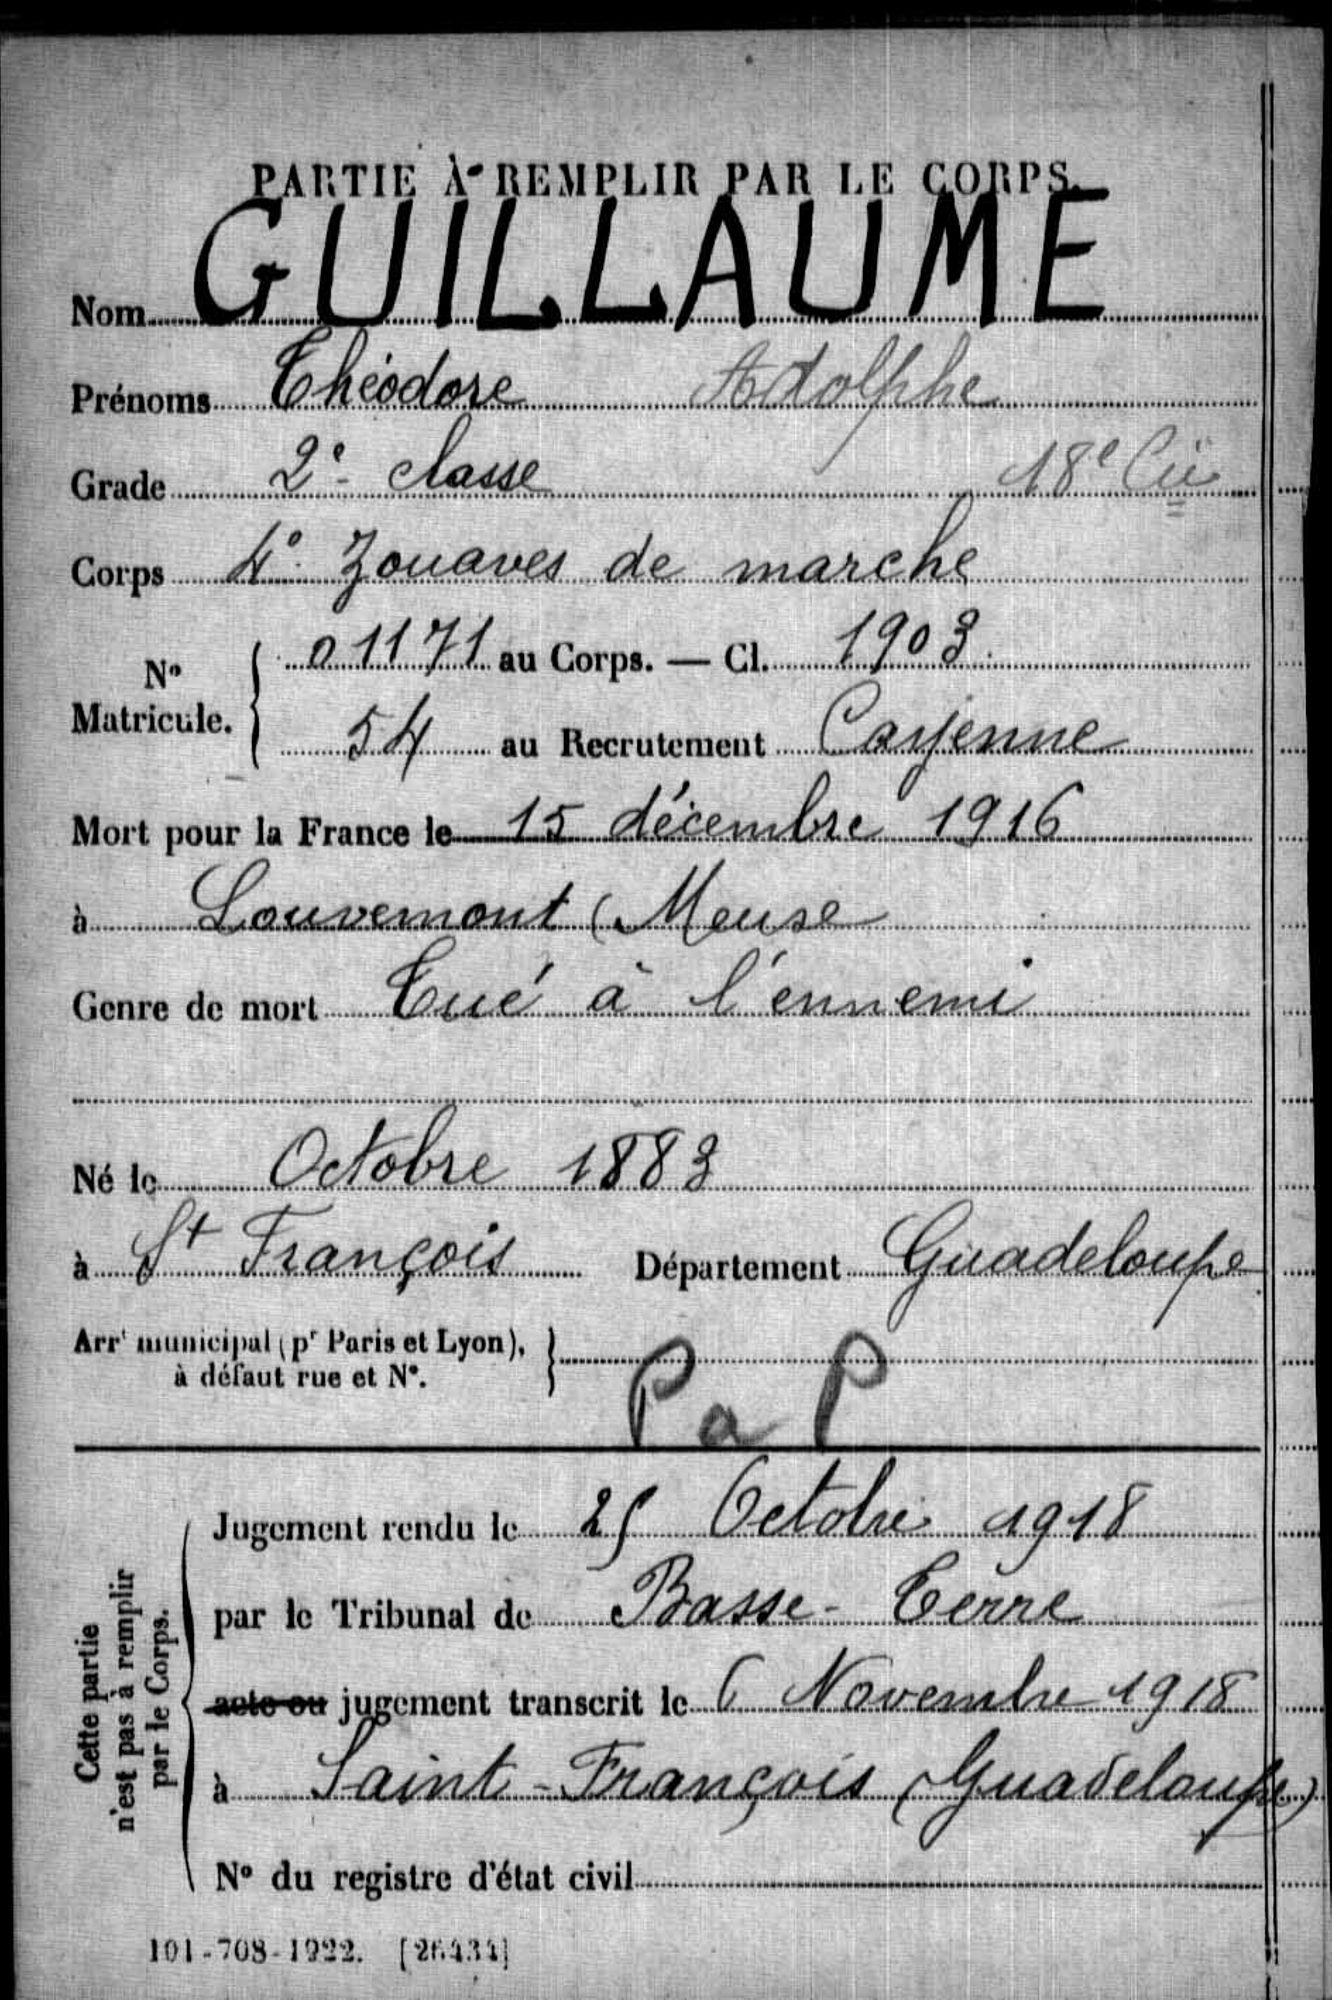 PARTIE À REMPLIR PAR LE CORPS.
Nom GUILLAUME
Prénoms Théodore Adolphe
Grade 2e classe 18e Cie
Corps 4e Zouaves de marche
No Matricule. { 01171 au Corps. — Cl. 1903
54 au Recrutement Cayenne
Mort pour la France le 15 décembre 1916
à Louvemont (Meuse
Genre de mort Tué à l'ennemi
Né le Octobre 1883
à St François Département Guadeloupe
Arrt municipal (pr Paris et Lyon), }
à défaut rue et No.
P a P
Jugement rendu le 25 Octobre 1918
par le Tribunal de Basse-Terre
acte ou jugement transcrit le 6 Novembre 1918
à Saint-François (Guadeloupe)
No du registre d'état civil
Cette partie
n'est pas à remplir
par le Corps.
101-708-1922. [26434]